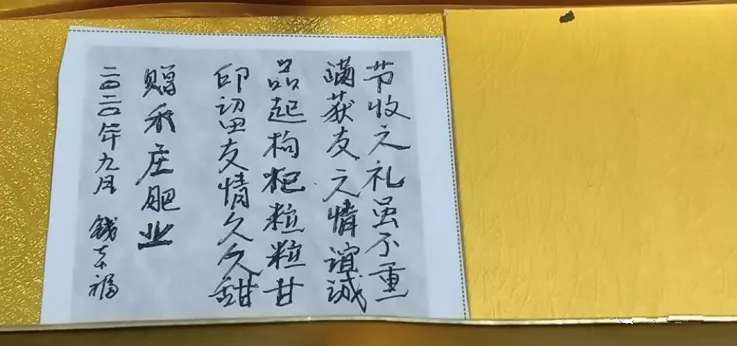 节收之礼虽不重
满获友之情谊诚
品起枸杞粒粒甘
印留友情久久甜
赠禾庄肥业
二〇二〇年九月 钱